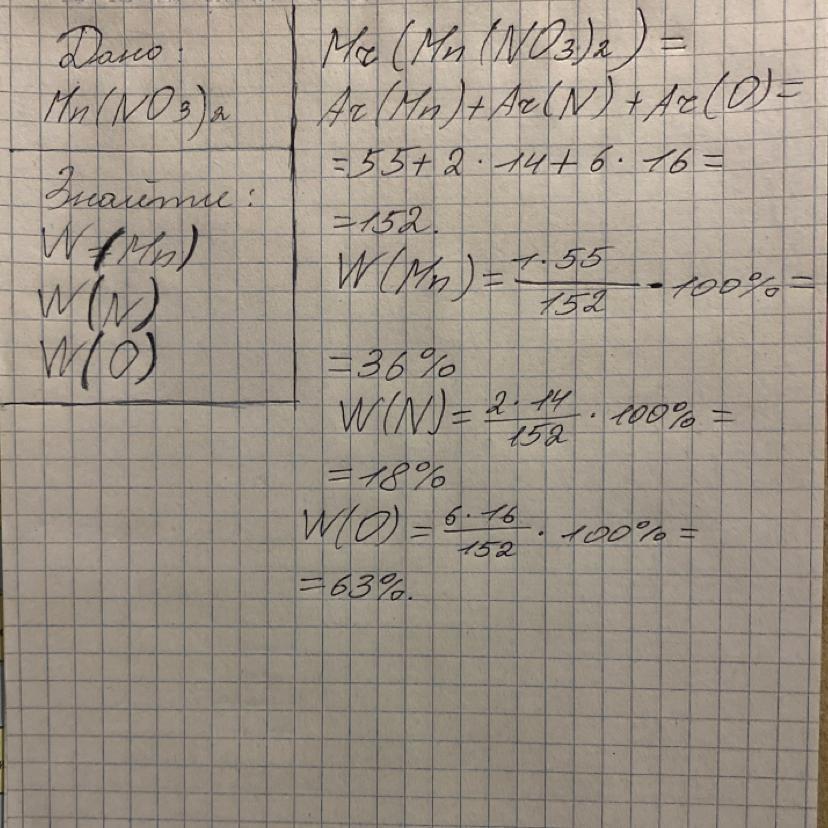 Дано:
Mn(NO3)2
Знайти:
W (Mn)
W(N)
W(O)
Mr(Mn(NO3)2) =
Ar(Mn)+Ar(N)+Ar(O)=
=55+2·14+6·16=
=152.
W(Mn)=1·55/152·100%=
=36%
W(N)=2·14/152·100%=
=18%
W(O)=6·16/152·100%=
=63%.